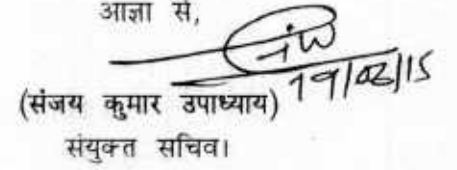 आज्ञा से,
19/02/15
(संजय कुमार उपाध्याय)
संयुक्त सचिव।